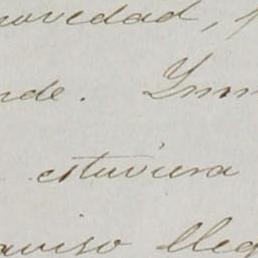 novedad,
nde. Inm
estuviera
aviso lleg